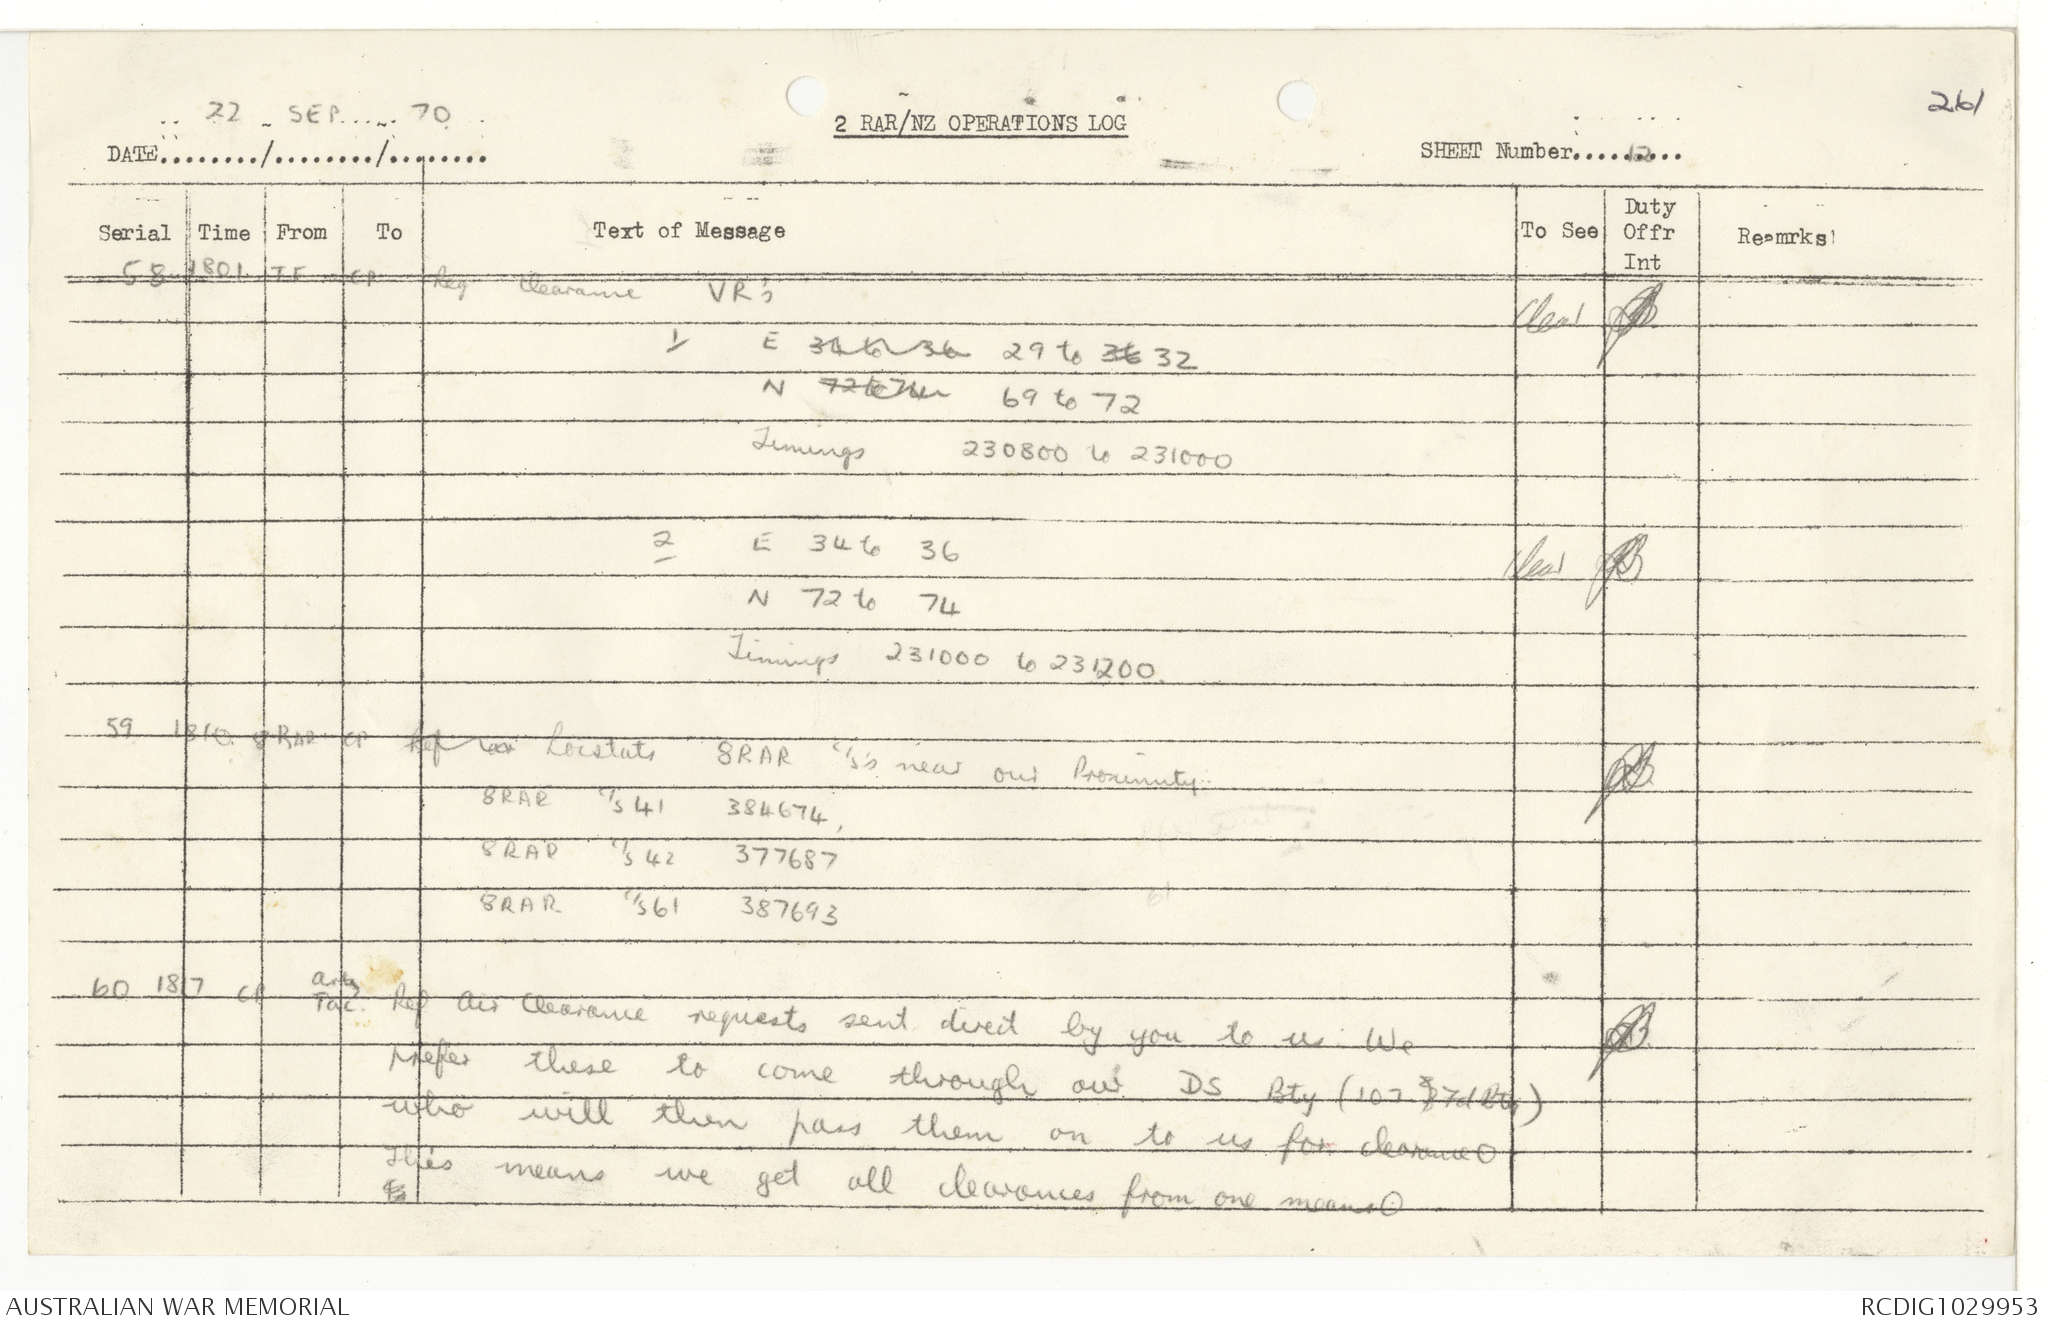 261
22 SEP 70
2 RAR/NZ OPERATIONS LOG
DATE......../......../........
SHEET Number....12....
Serial Time From To Text of Message To See Duty Offr Int Reamrks
58 1801 TF CP Req Clearance VR's Clear
1 E 34 to 36 29 to 36 32
N 72 to 74 69 to 72
Timings 230800 to 231000
2 E 34 to 36 Clear
N 72 to 74
Timings 231000 to 231200.
59 1810 8RAR CP Ref Locstats 8RAR c/s's near our Proximity
8RAR c/s 41 384674,
8RAR c/s 42 377687
8RAR c/s 61 387693
60 1817 CP Arty Tac. Ref Air Clearance requests sent direct by you to us. We
prefer these to come through our DS Bty (107 Fd Bty)
who will then pass them on to us for clearance
This means we get all clearances from one means
AUSTRALIAN WAR MEMORIAL
RCDIG1029953